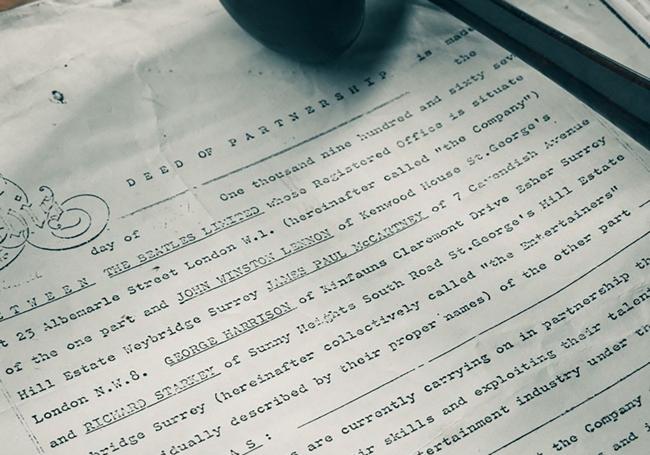 DEED OF PARTNERSHIP is made the
day of One thousand nine hundred and sixty seven
BETWEEN THE BEATLES LIMITED whose Registered Office is situate
at 23 Albemarle Street London W.1. (hereinafter called "the Company")
of the one part and JOHN WINSTON LENNON of Kenwood House St.George's
Hill Estate Weybridge Surrey JAMES PAUL McCARTNEY of 7 Cavendish Avenue
London N.W.8. GEORGE HARRISON of Kinfauns Claremont Drive Esher Surrey
and RICHARD STARKEY of Sunny Heights South Road St.George's Hill Estate
bridge Surrey (hereinafter collectively called "the Entertainers"
idually described by their proper names) of the other part
A S :
s are currently carrying on in partnership th
ir skills and exploiting their talen
tertainment industry under the
the Company
and i